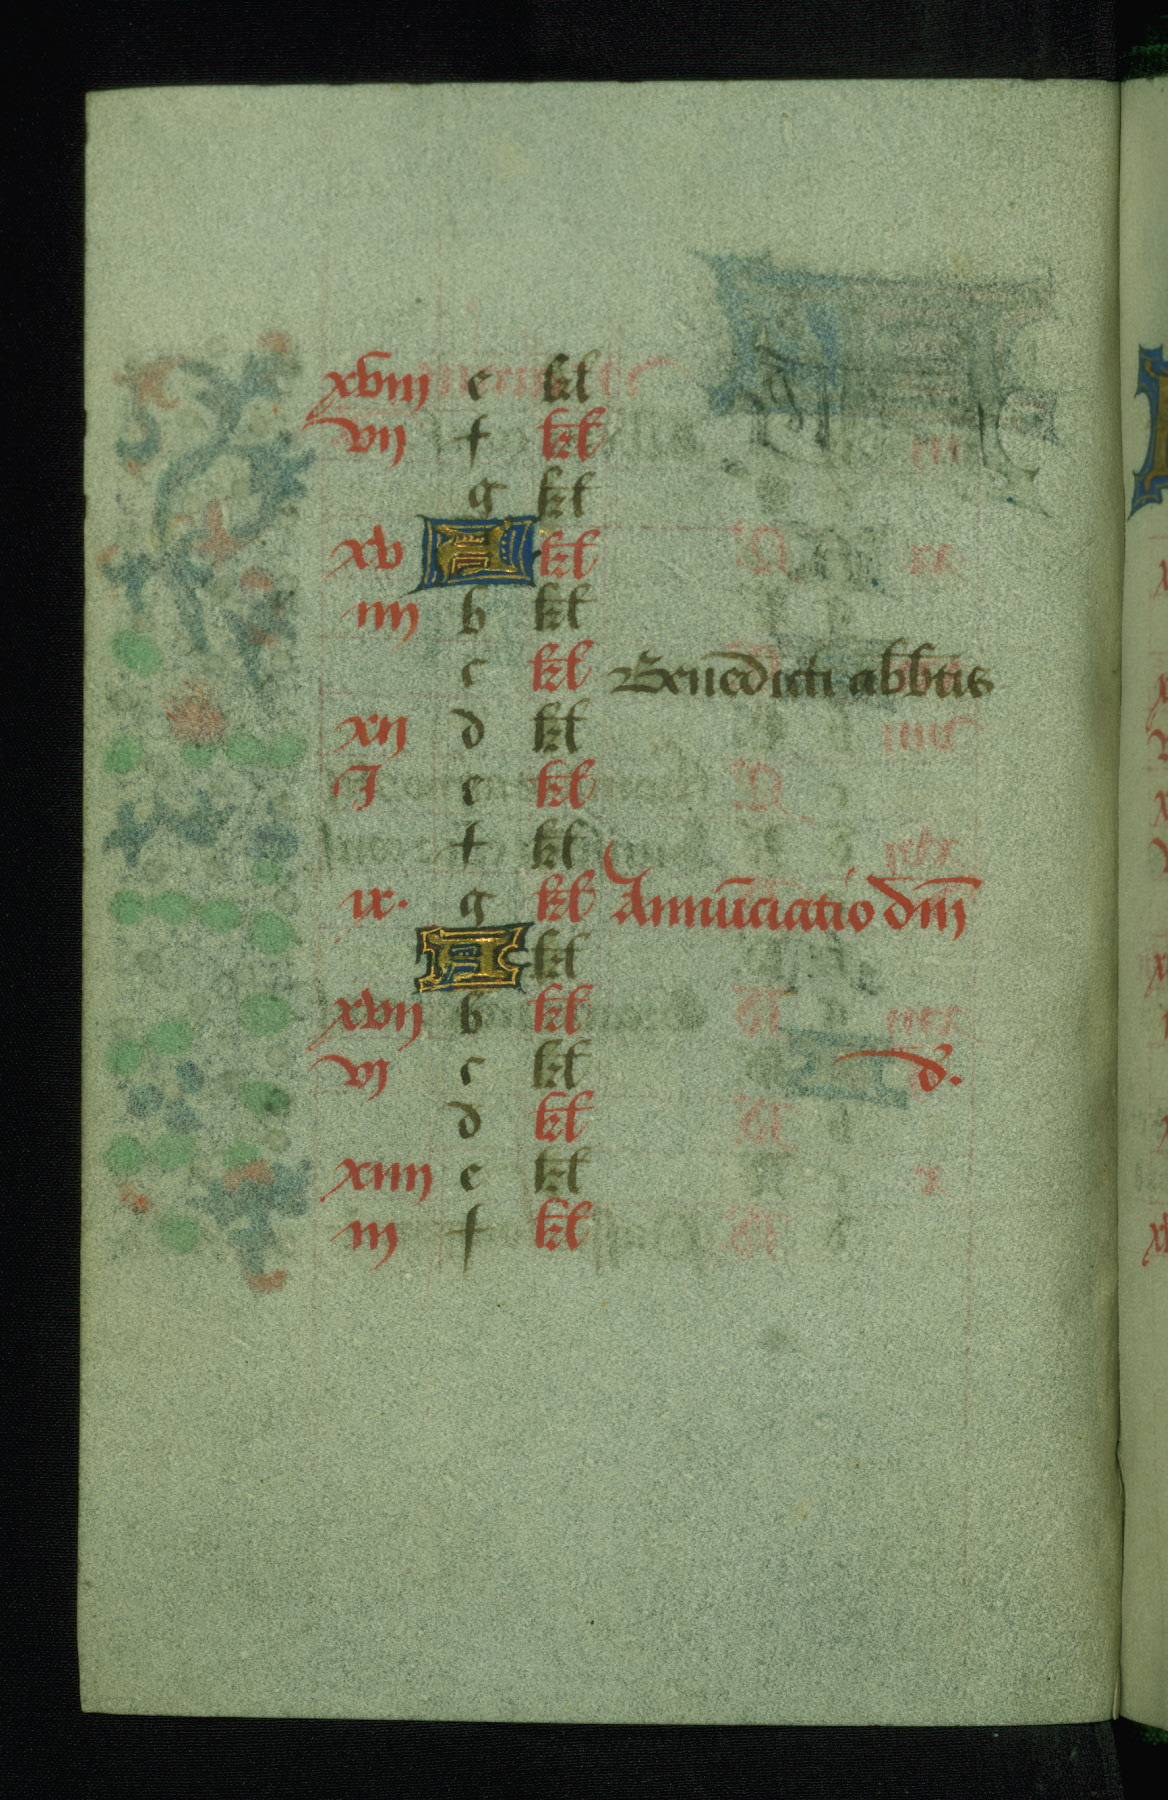 xviij e kl
vij f kl
g kl
xv A kl
iiij b kl
c kl Benedicti abbtis
xij d kl
J e kl
f kl
ix. g kl Annūciatio dm̄
A kl
xvij b kl
vj c kl
d kl
xiiij e kl
iij f kl